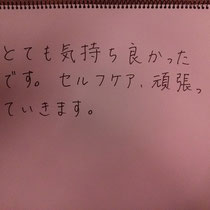 とても気持ち良かった
です。セルフケア、頑張っ
ていきます。